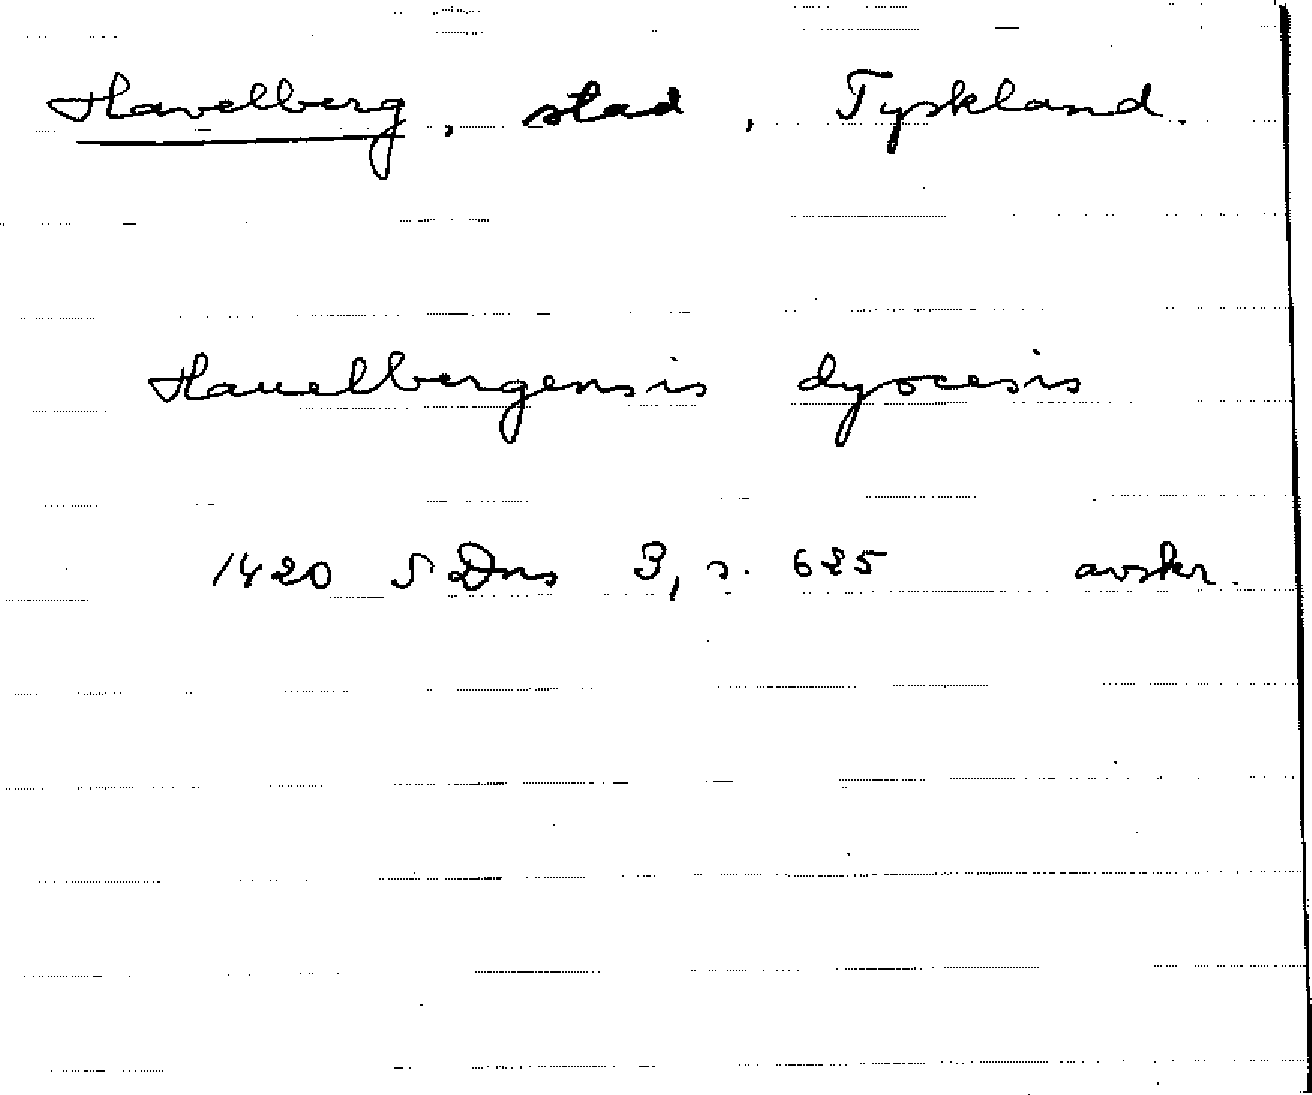 Havelberg, stad, Tyskland.
Hauelbergensis dyocesis
1420 SDns 3, s. 625 avskr.